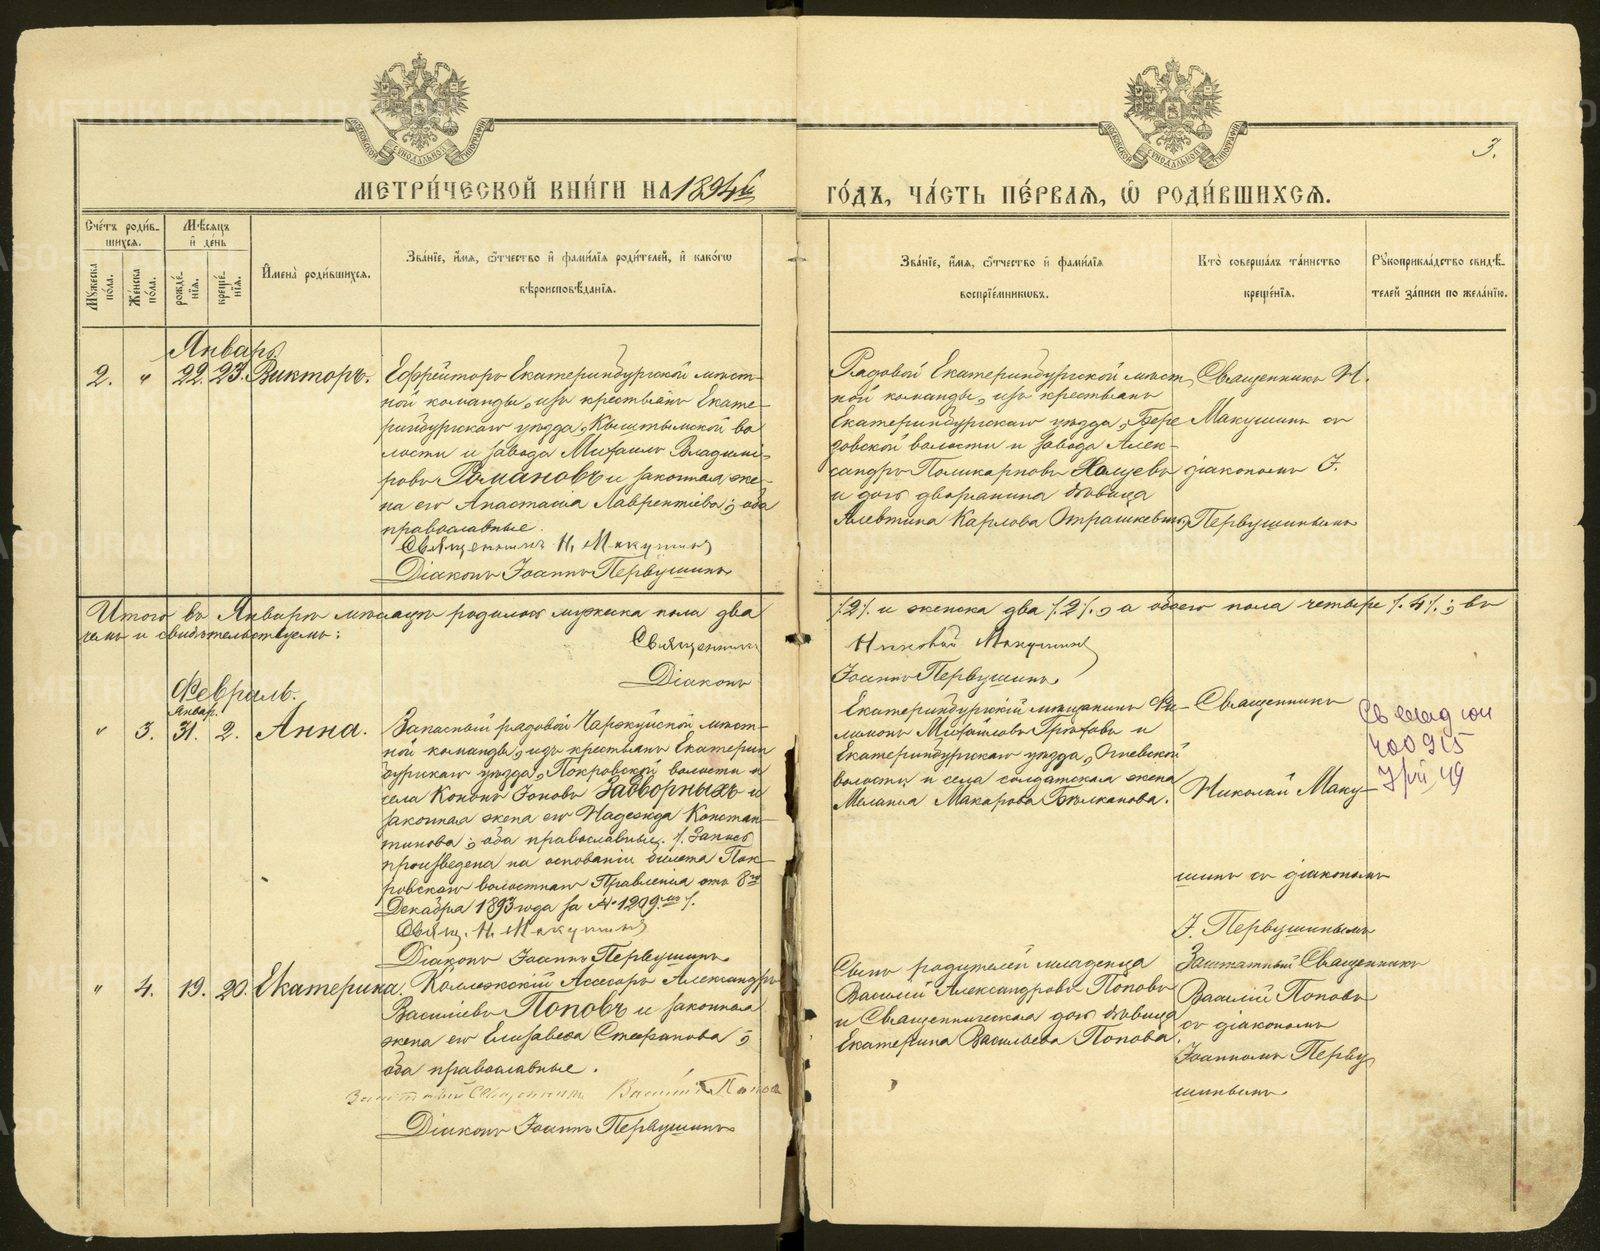 3.
МЕТРИ́ЧЕСКОЙ КНИ́ГИ НА 1894й ГО́ДЪ, ЧА́СТЬ ПЕ́РВАѦ, Ѽ РОДИ́ВШИХСѦ.
Сче́тъ роди́в-
шихсѧ.
Мѣ́сѧцъ
и҆ де́нь
Мꙋ́жеска
по́ла.
Же́нска
по́ла.
рожде́-
нїѧ.
креще́-
нїѧ.
И҆мена̀ роди́вшихсѧ.
Зва́нїе, и҆́мѧ, ѻ҆́тчество и҆ фами́лїѧ роди́телей, и҆ како́гѡ
вѣроисповѣ́данїѧ.
Зва́нїе, и҆́мѧ, ѻ҆́тчество и҆ фами́лїѧ
воспрїе́мникѡвъ.
Кто̀ соверша́лъ та́инство
креще́нїѧ.
Рꙋкоприкла́дство свидѣ́-
телей за́писи по жела́нїю.
Январь
2. " 22. 23. Викторъ.
Ефрейторъ Екатеринбургской мѣст-
ной команды, изъ крестьянъ Екате-
ринбургскаго уѣзда, Кыштымской во
лости и завода Михаилъ Владимі-
ровъ Романовъ и законная же-
на его Анастасія Лаврентіева; оба
православные.
Священникъ Н. Макушинъ
Діаконъ Іоаннъ Первушинъ
Рядовой Екатеринбургской мѣст
ной команды, изъ крестьянъ
Екатеринбургскаго уѣзда, Бере
зовской волости и завода Алек-
сандръ Поликарповъ
и дочь дворянина дѣвица
Алевтина Карлова Отрашкевичъ
Священникъ Н.
Макушинъ съ
діакономъ І.
Первушинымъ
Итого въ Январѣ мѣсяцѣ родилось мужеска пола два /2/. и женска два /.2/., а обоего пола четыре /.4/.; въ
чемъ и свидѣтельствуемъ:
Священникъ Николай Макушинъ
Діаконъ Іоаннъ Первушинъ
Февраль.
Январ.
" 3. 31. 2. Анна.
Запасный рядовой Чарджуйской мѣст-
ной команды, изъ крестьянъ Екатерин
бургскаго уѣзда, Покровской волости и
села Кононъ Іоновъ Задворныхъ и
законная жена его Надежда Констан-
тинова; оба православные. /. Запись
произведена на основаніи билета Пок-
ровскаго волостнаго Правленія отъ 8го
Декабря 1893 года за № 1209.мъ /.
Свящ. Н. Макушинъ
Діаконъ Іоаннъ Первушинъ
Екатеринбургскій мѣщанинъ Фи-
лимонъ Михайловъ и
Екатеринбургскаго уѣзда,
волости и села солдатская жена
Меланія Макарова
Священникъ
Николай Маку-
шинъ съ діакономъ
І. Первушинымъ
400915
49
" 4. 19. 20. Екатерина.
Коллежскій Ассесоръ Александръ
Василіевъ Поповъ и законная
жена его Елизавета Стефанова;
оба православные.
Заштатный Священникъ Василій Поповъ
Діаконъ Іоаннъ Первушинъ
Сынъ родителей младенца
Василій Александровъ Поповъ
и Священническая дочь дѣвица
Екатерина Васильева Попова.
Заштатный Священникъ
Василій Поповъ
съ діакономъ
Іоанномъ Перву
шинымъ